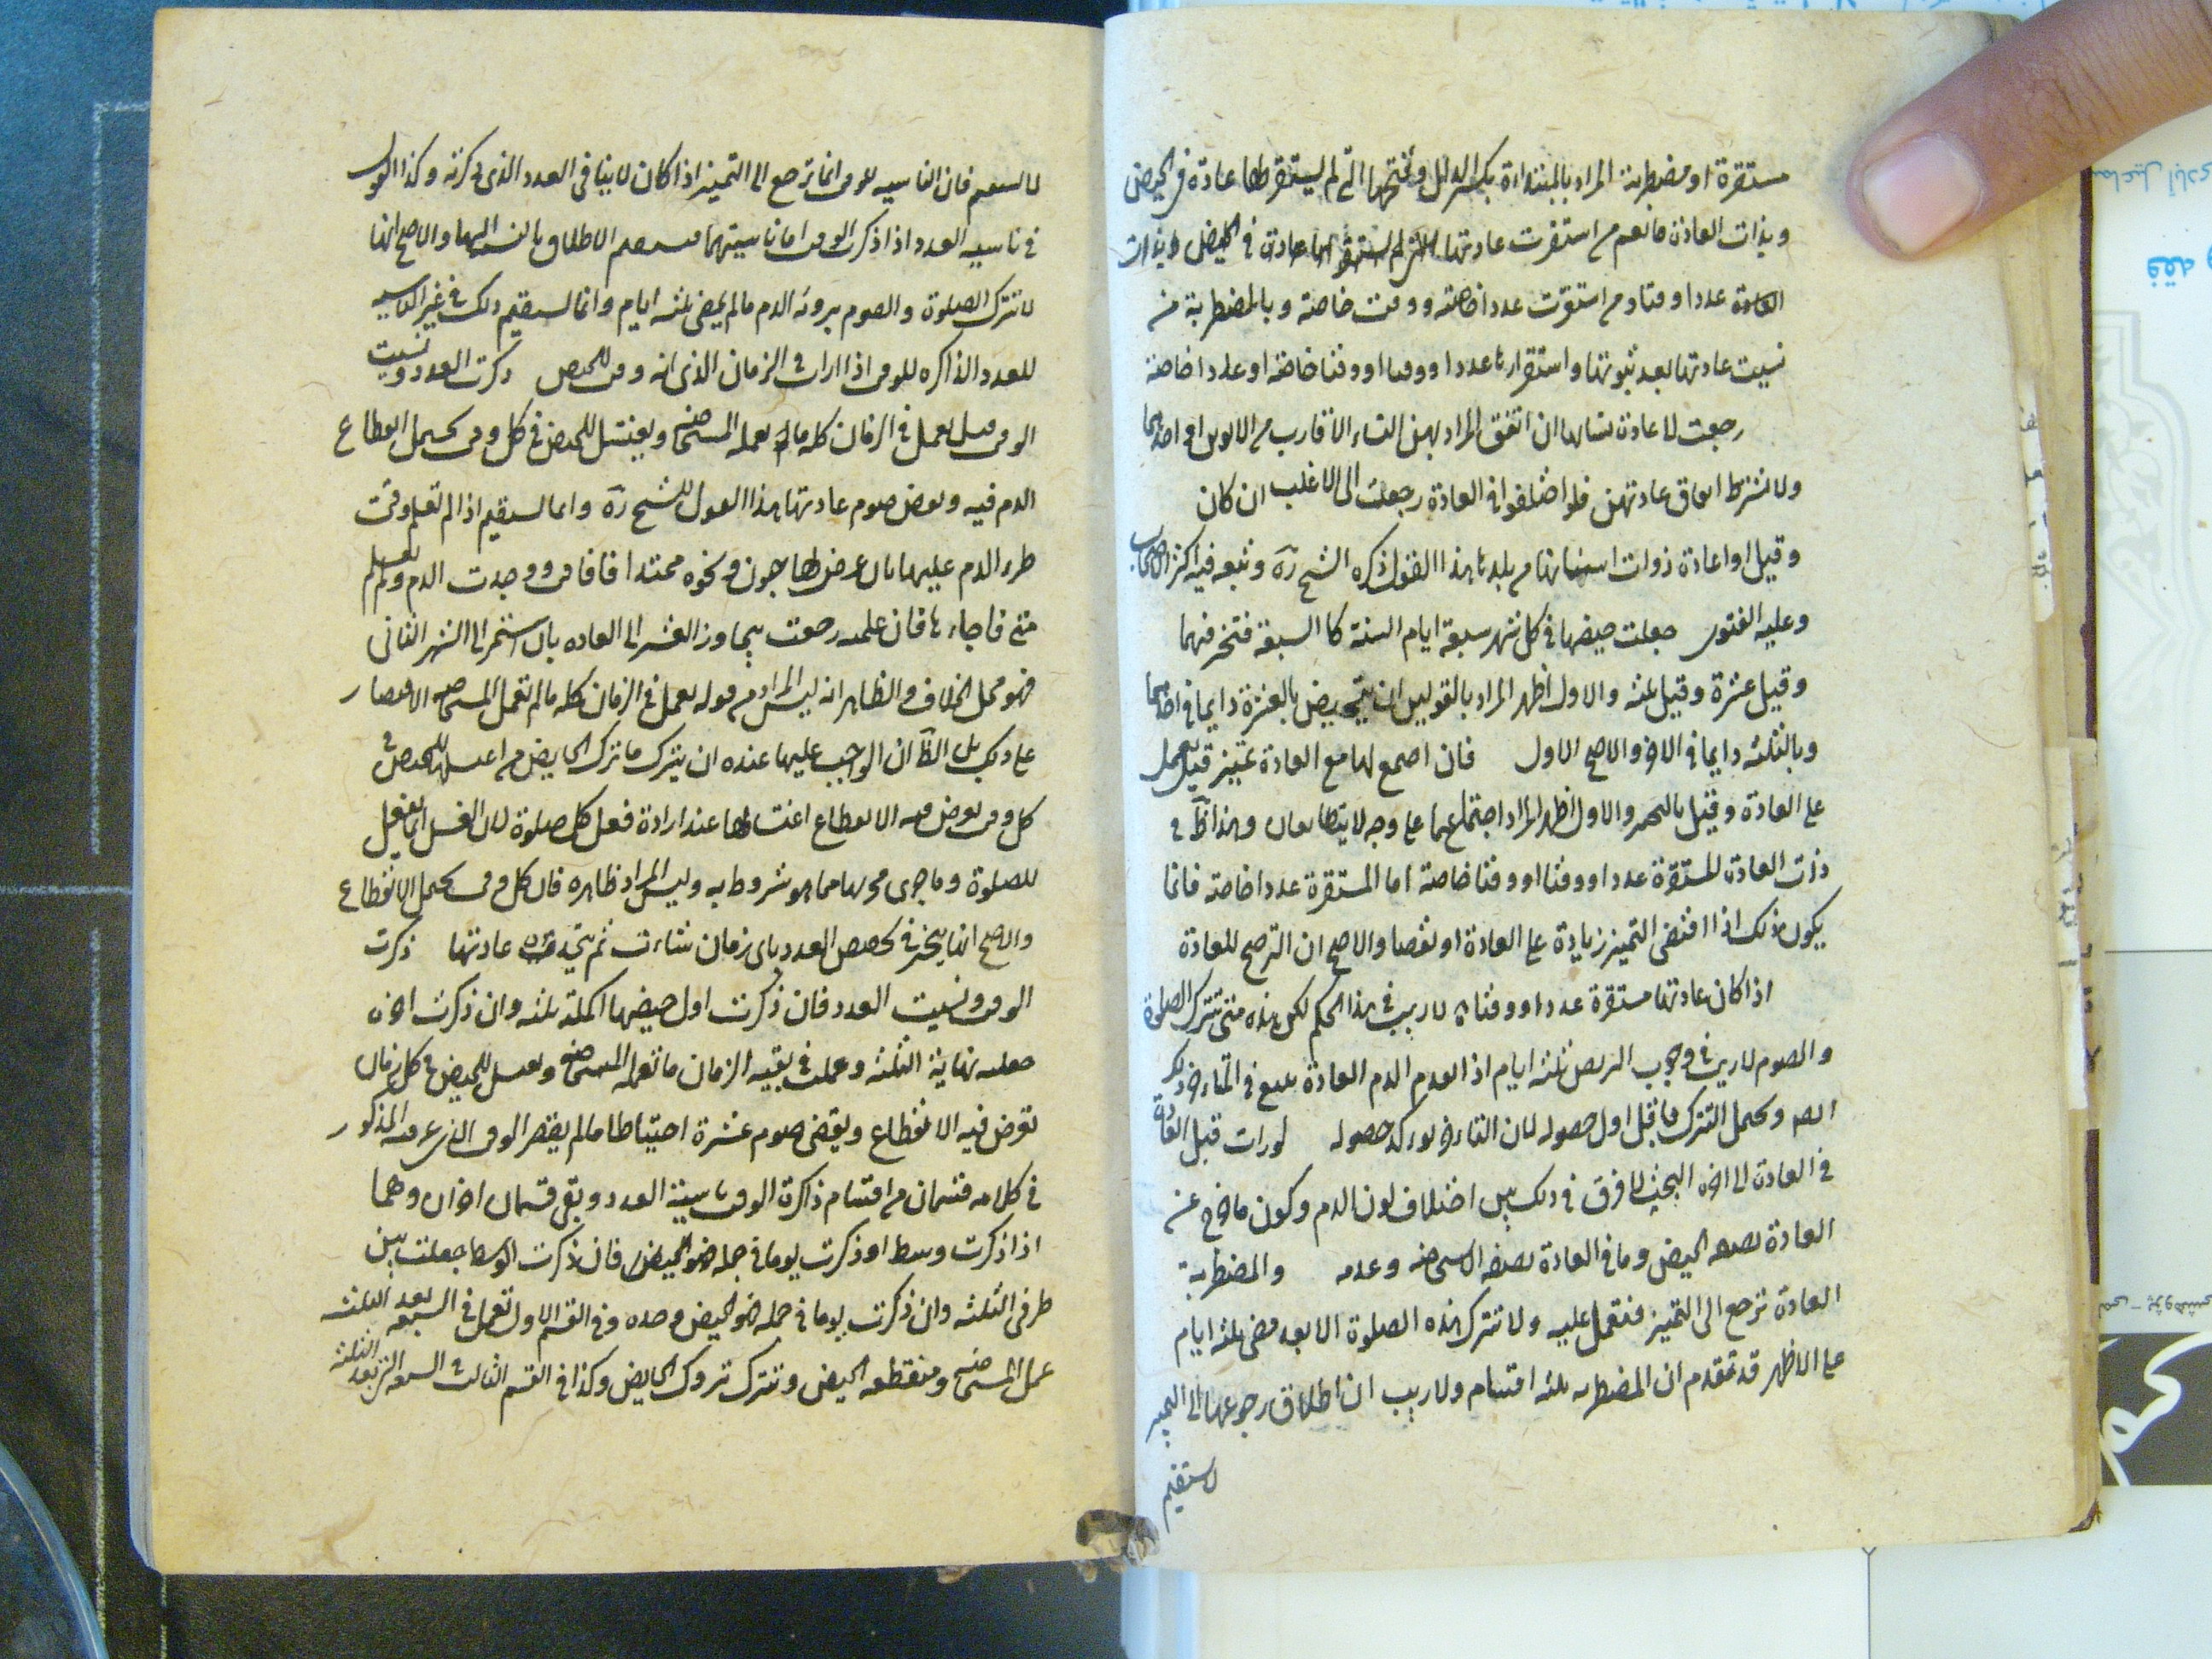 مستقرة او مضطربة المراد بالمبتداءة بكسر الدال وفتحها التي لم ليستقر لها عادة في الحيض
وبذات العادة فانعم من استقرت عادتها
العادة عددا ووقتا ومن استقرت عددا خاصة ووقت خاصة وبالمضطربة من
نسيت عادتها بعد ثبوتها واستقرارها عددا ووقتا او وقتا خاصة او عددا خاصة
رجعت لا عادة نسائها ان اتفقن المراد بهن النساء الاقارب من الابوين او احدهما
ولا نشترط اتفاق عادتهن فلو اختلفوا في العادة رجعت الى الاغلب ان كان
وقيل او اعادة ذوات اسنانها من بلدها هذا القول ذكره الشيخ ره وتبعه فيه اكثر الاصحاب
وعليه الفتوى جعلت حيضها في كل شهر سبعة ايام الستة كا السبعة فتخير فيهما
وقيل عشرة وقيل ثلثه والاول اظهر المراد بالقولين ان تتحيض بالعشرة دايما في احدهما
وبالثلثه دايما في الاخر والاصح الاول فان اجتمع لها مع العادة تمييز قيل تعمل
على العادة وقيل بالتمييز والاول اظهر المراد اجتماعهما على وجه لا يتطابقان وهذا ظ في
ذات العادة المستقرة عددا ووقتا او وقتا خاصة اما المستقرة عددا خاصة فانما
يكون ذلك اذا اقتضى التمييز زيادة على العادة او نقصا والاصح ان الترجيح للعادة
اذا كان عادتها مستقرة عددا ووقتا لا ريب في هذا الحكم لكن هذه متى تترك الصلوة
والصوم لا ريب في وجوب التربص ثلثه ايام اذا لعدم الدم العادة
الدم ويحتمل الترك قبل اول حصوله لان التاخر يوكد حصوله لو رات قبل العادة
في العادة الى اخره البحث لا فرق في ذلك بين اختلاف لون الدم وكون ما خرج عن
العادة بصفة الحيض وما في العادة بصفة الاستحاضه وعدمه والمضطربة
العادة ترجع الى التمييز فتعمل عليه ولا تترك هذه الصلوة الا بعد مضي ثلثه ايام
على الاظهر قد تقدم ان المضطربه ثلثه اقسام ولا ريب ان اطلاق رجوعها الى التمييز
لا يستقيم
لا يستقيم فان الناسيه للوقت انما ترجع الى التمييز اذا كان لا ينافى العدد الذى ذكرته وكذا القول
في ناسيه العدد اذا ذكرت الوقت اما ناسيتهما فيستقيم الاطلاق بالنسبة اليها والاصح انها
لا تترك الصلوة والصوم برويه الدم ما لم يمض ثلثه ايام وانما يستقيم ذلك في غير الناسيه
للعدد الذاكره للوقت اذا رات في الزمان الذى انه وقت للحيض ذكرت العدد ونسيت
الوقت قيل تعمل في الزمان كله ما تعمله المستحاضه وتغتسل للحيض في كل وقت يحتمل انقطاع
الدم فيه وتقضى صوم عادتها هذا القول للشيخ ره وانما يستقيم اذا لم تعلم وقت
طرء الدم عليها بان عرض لها جنون ونحوه ممتدا فافاقت ووجدت الدم ولم تعلم
متى فاجاءها فان علمت رجعت بتجاوز العشر الى العاده بان استمر الى الشهر الثانى
فهو محل الخلاف والظاهر انه ليس المراد من قوله تعمل في الزمان كله ما تعمله المستحاضه الاقتصار
على ذلك بل الظ ان الواجب عليها عنده ان تترك ما تترك الحايض مع اغتسالها للحيض في
كل وقت يفرض فيه الانقطاع اغتسالها عند ارادة فعل كل صلوة لان الغسل انما يفعل
للصلوة وما جرى مجريها مما هو مشروط به وليس المراد ظاهره فان كل وقت يحتمل الانقطاع
والاصح انها تتخير في تخصيص العدد باى زمان شاءت ثم تتخذه عادتها ذكرت
الوقت ونسيت العدد فان ذكرت اول حيضها اكملته ثلثه وان ذكرت اخره
جعلته نهاية الثلثه وعملت في بقيه الزمان ما تعمله المستحاضه وتغتسل للحيض في كل زمان
تفرض فيه الانقطاع وتقضى صوم عشرة احتياطا ما لم يقصر الوقت الذى عرفته المذكور
في كلامه قسمان من اقسام ذاكرة الوقت ناسية العدد وبقى قسمان اخران وهما
اذا ذكرت وسط او ذكرت يوما في جمله الحيض فان ذكرت الوسط جعلت بين
طرفى الثلثه وان ذكرت يوما في جمله فهو الحيض وحده وفى القسم الاول تعمل في السبعه بعد الثلثه
عمل المستحاضه ومنقطعه الحيض وتترك تروك الحايض وكذا في القسم الثالث السبعه التى بعد الثلثه